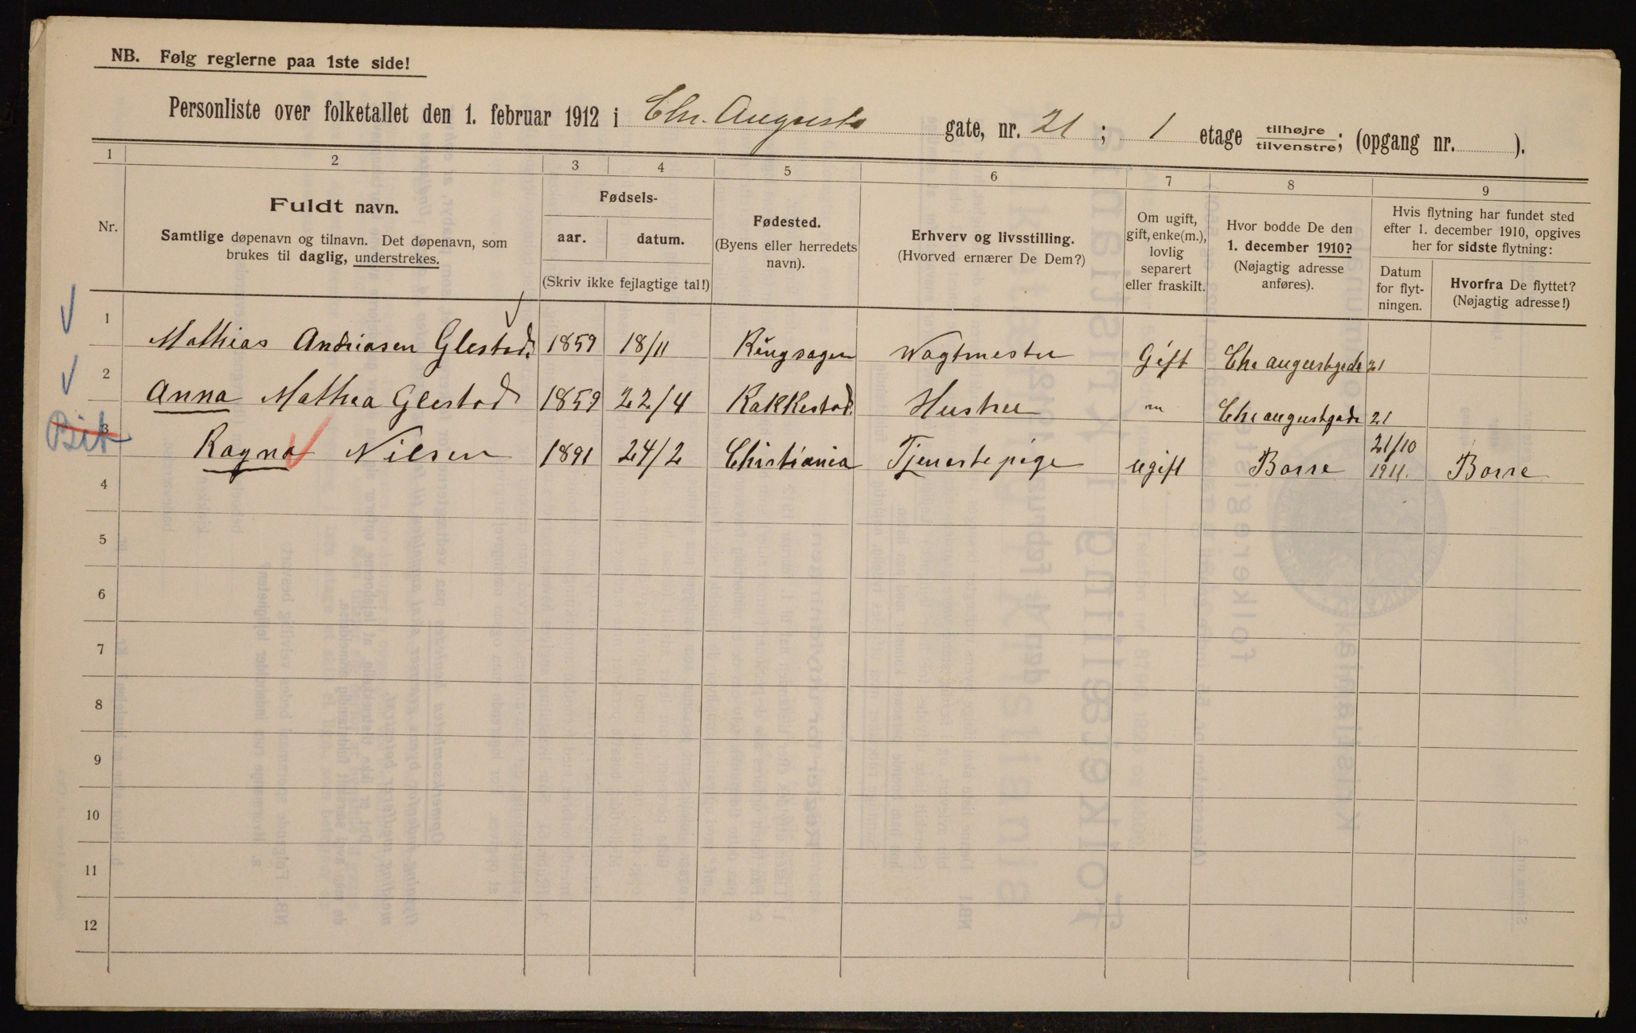 NB. Følg reglerne paa 1ste side!
Personliste over folketallet den 1. februar 1912 i Chr. Augusts gate, nr. 21 ; 1 etage tilhøjre tilvenstre; (opgang nr. ).
1 2 3 4 5 6 7 8 9
Nr.
Fuldt navn.
Samtlige døpenavn og tilnavn. Det døpenavn, som
brukes til daglig, understrekes.
Fødsels-
aar. datum.
(Skriv ikke fejlagtige tal!)
Fødested.
(Byens eller herredets
navn).
Erhverv og livsstilling.
(Hvorved ernærer De Dem?)
Om ugift,
gift, enke(m.),
lovlig
separert
eller fraskilt.
Hvor bodde De den
1. december 1910?
(Nøjagtig adresse
anføres).
Hvis flytning har fundet sted
efter 1. december 1910, opgives
her for sidste flytning:
Datum
for flyt-
ningen.
Hvorfra De flyttet?
(Nøjagtig adresse!)
1 Mathias Andriasen Glestad 1859 18/11 Ringsager Vagtmester Gift Chr augustgade 21
2 Anna Mathea Glestad 1859 22/4 Rakkestad Hustru " Chr augustgade 21
3 Ragna Nilsen 1891 24/2 Christiania Tjenestepige ugift Borre 21/10 1911. Borre
4
5
6
7
8
9
10
11
12